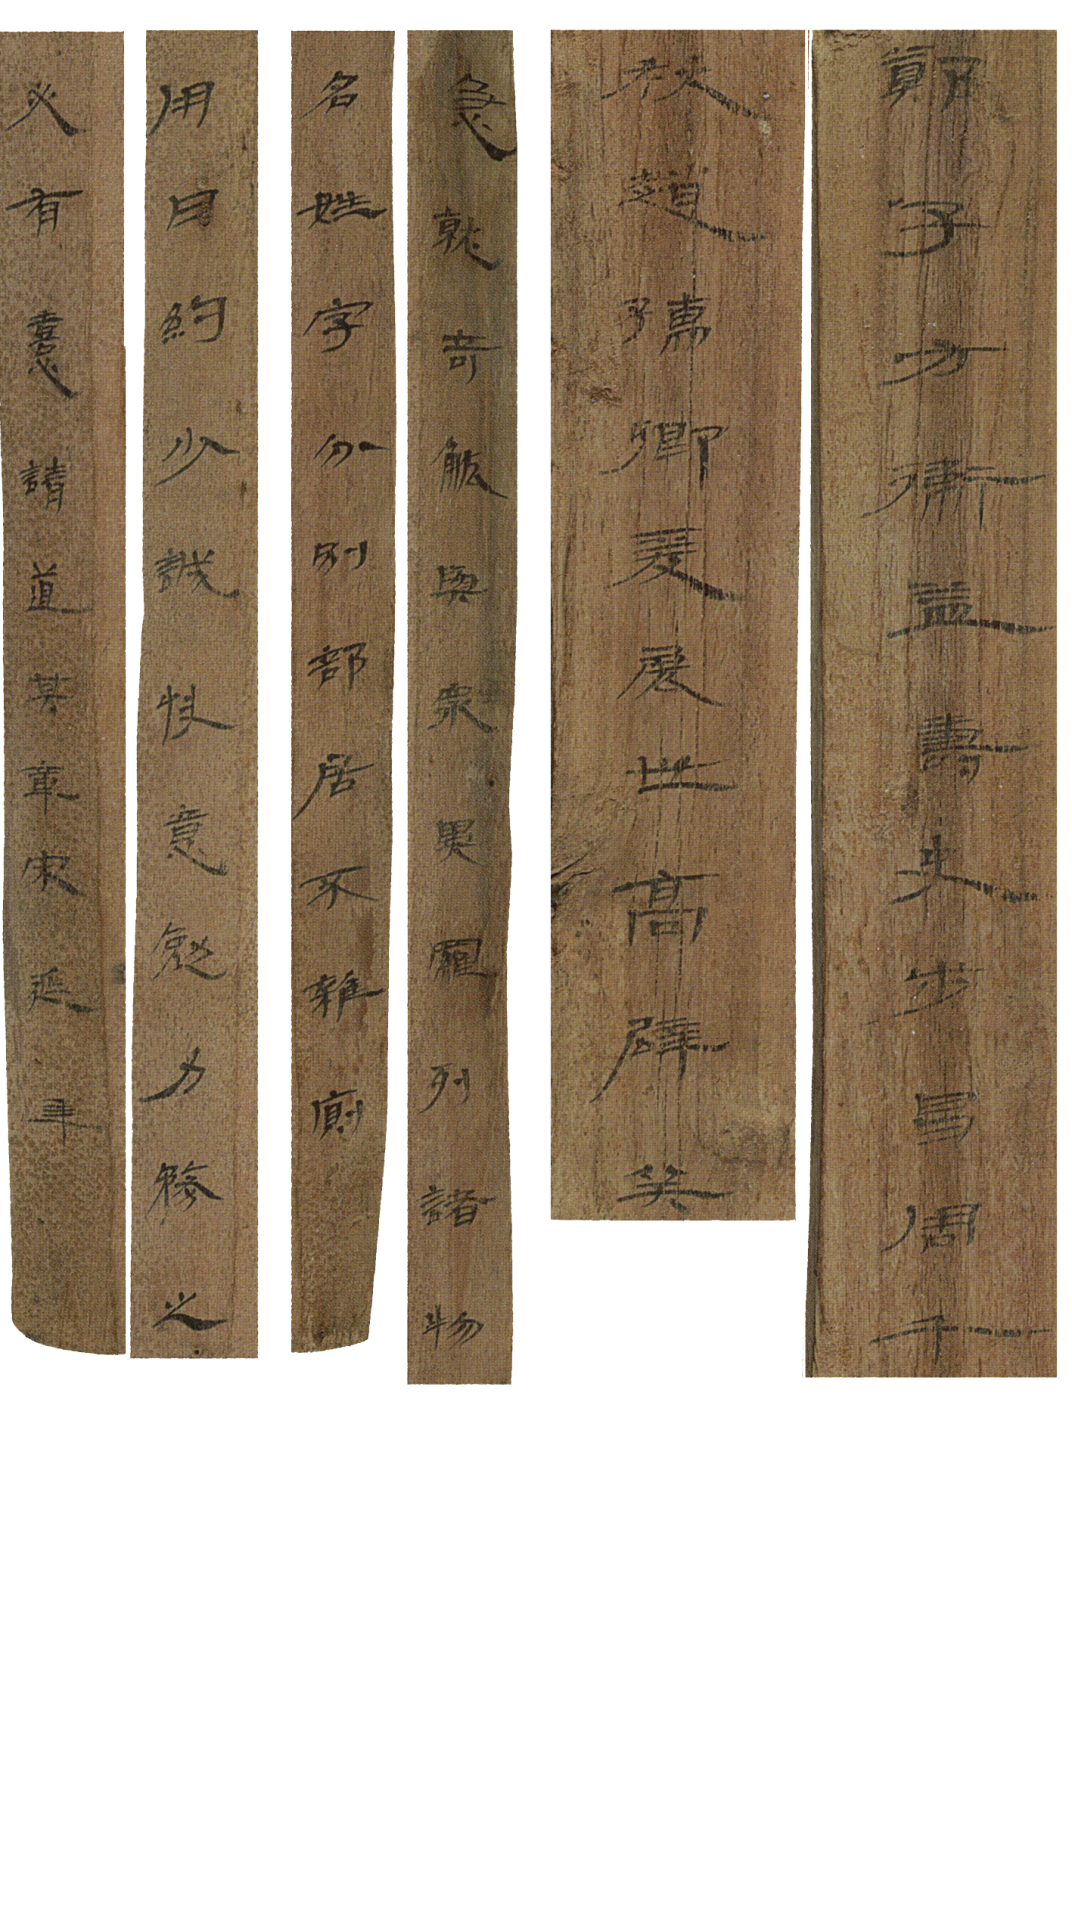 鄭子方衛益壽史步昌周千
秋趙孺卿爰展世高辟兵
急就奇觚與衆異羅列諸物
名姓字分別部居不雜廁
用日約少誠快意勉力務之
必有憙請道其章宋延年